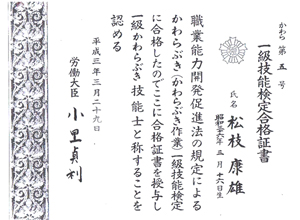 かわら 第五号
一級技能検定合格証書
氏名 松枝康雄
昭和二六年五月十六日生
職業能力開発促進法の規定による
かわらぶき(かわらぶき作業)一級技能検定
に合格したのでここに合格証書を授与し
一級かわらぶき技能士と称することを
認める
平成三年三月二十九日
労働大臣 小里貞利